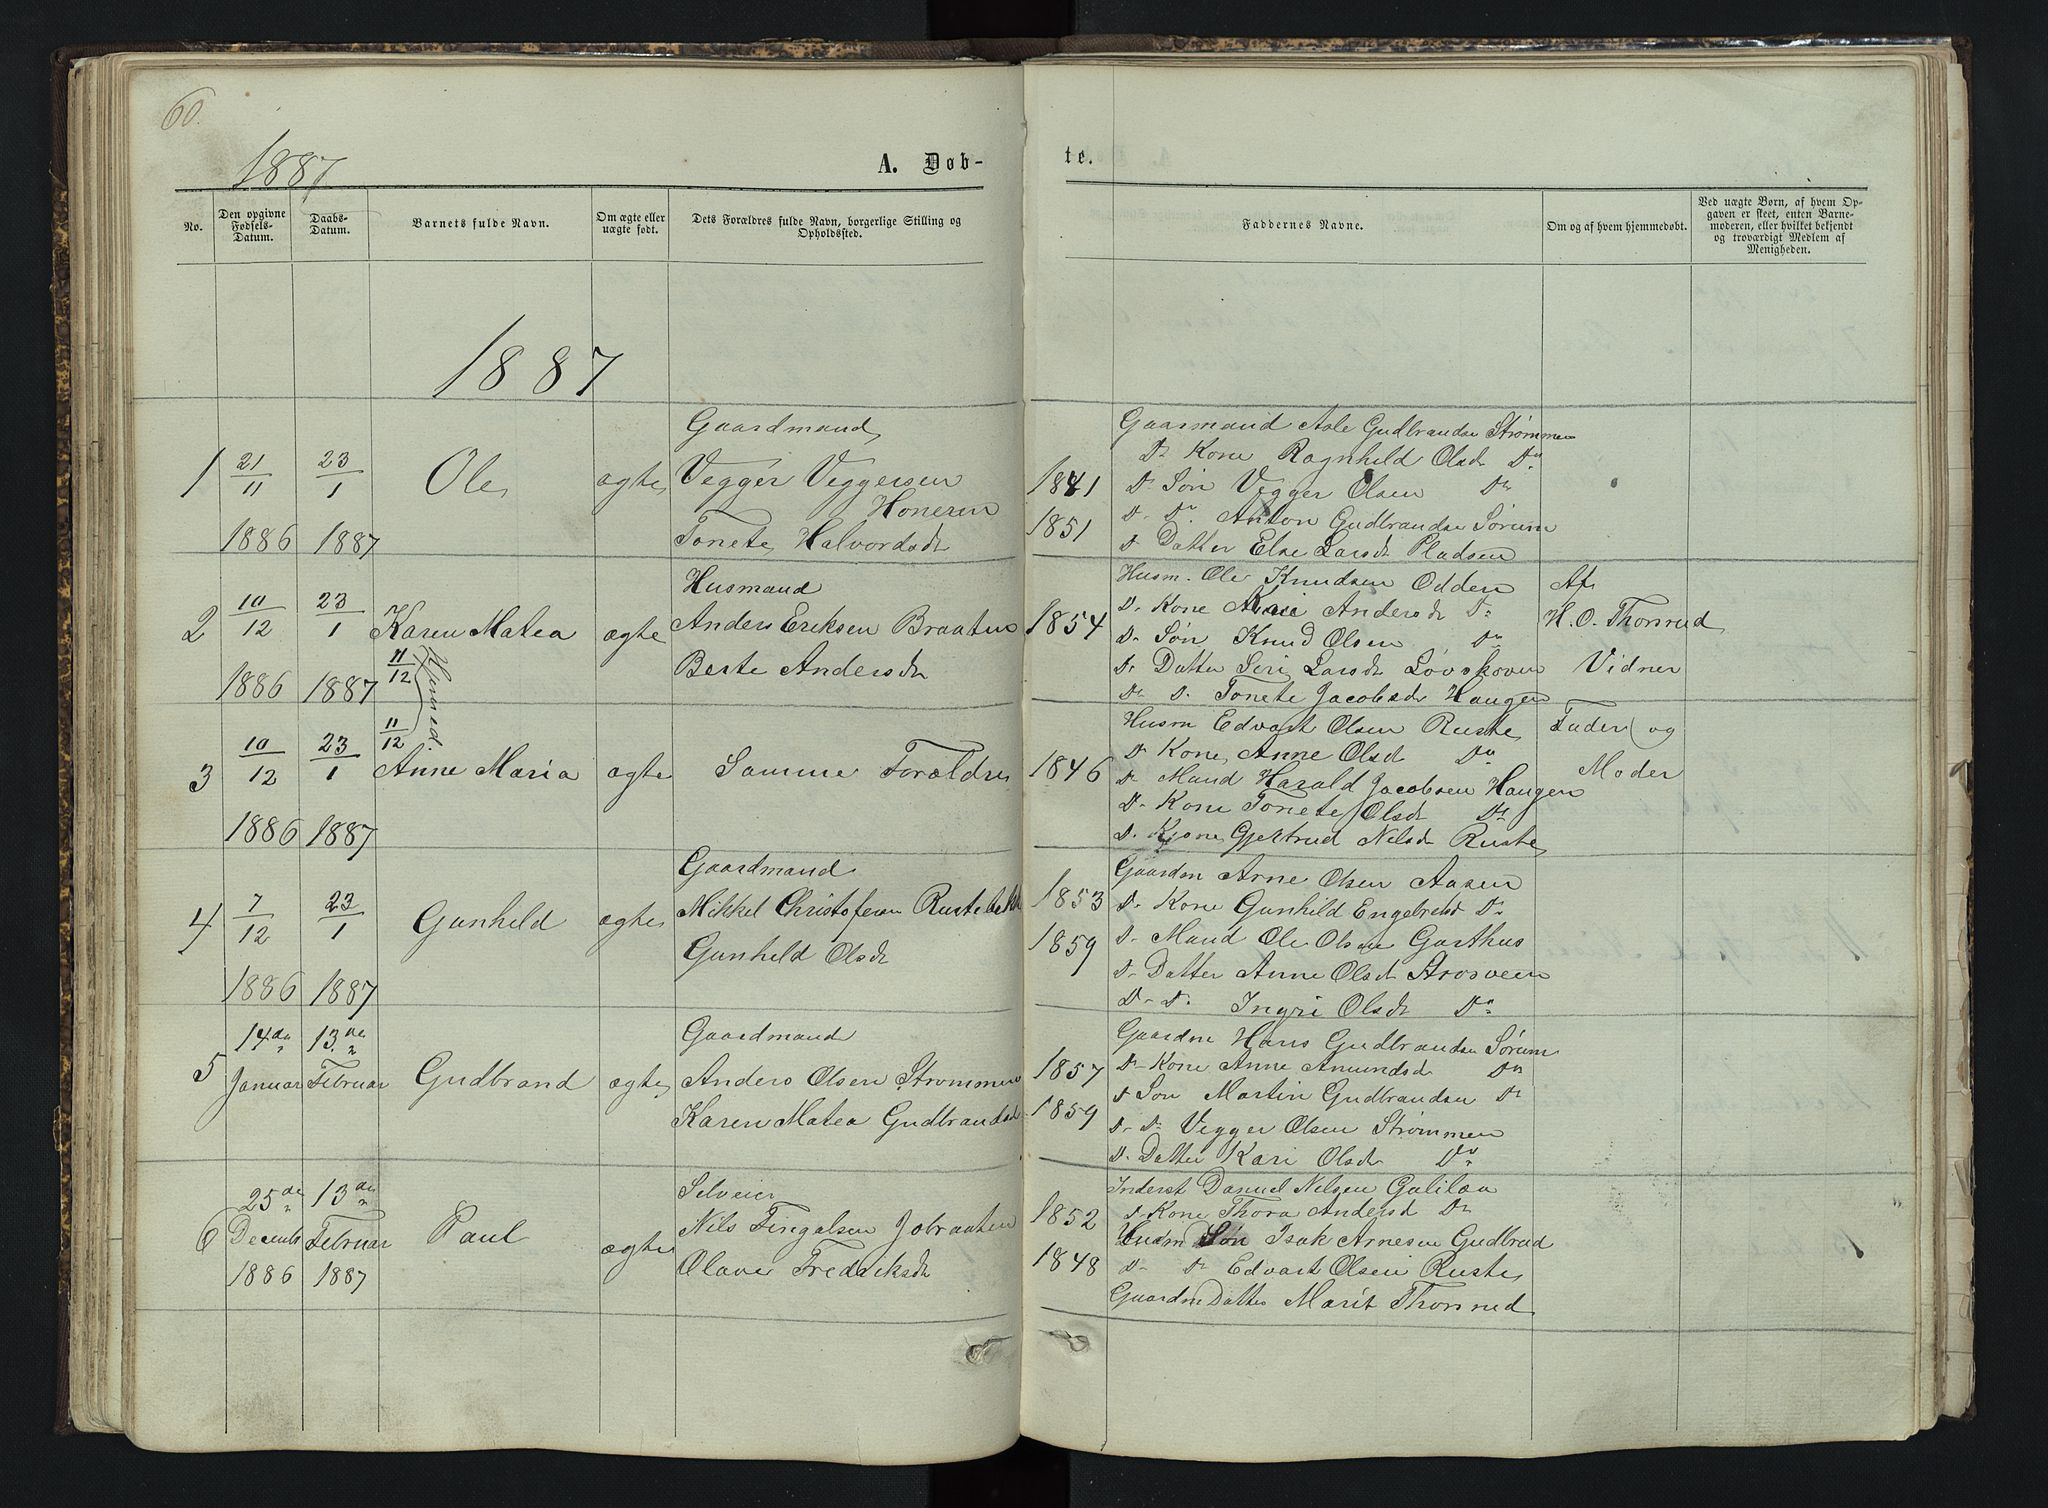 60.
1887
A. Døb-
te.
No.
Den opgivne
Fødsels-
Datum.
Daabs-
Datum.
Barnets fulde Navn.
Om ægte eller
uægte født.
Dets Forældres fulde Navn, borgerlige Stilling og
Opholdssted.
Faddernes Navne.
Om og af hvem hjemmedøbt.
Ved uægte Børn, af hvem Op-
gaven er skeet, enten Barne-
moderen, eller hvilket bekjendt
og troværdigt Medlem af
Menigheden.
1887
1
21/11
1886
23/1
1887
Ole
ægte
Gaardmand
Vegger Veggersen
Honeren
Tonete Halvordsdt
1841
1851
Gaarmand Asle Gudbrandsn Strømmen
Do Kone Ragnhild Olsdt Do
Do Søn Vegger Olsen Do
Do Do Anton Gudbrandsn Sørum
Do Datter Else Larsdt Pladsen
2
10/12
1886
23/1
1887
Karen Matea
11/12
Hjemmed.
ægte
Husmand
Anders Eriksen Braaten
Berte Andersdt
1854
Husm. Ole Knudsen Odden
Do Kone Kari Andersdt Do
Do Søn Knud Olsen Do
Do Datter Siri Larsdt Løvskoven
Do Do Tonete Jacobsdt Haugen
Af
H. O. Thonrud
Vidner
3
10/12
1886
23/1
1887
11/12
Anne Maria
ægte
Samme Forældre
1846
Husm Edvart Olsen Ruste
Do Kone Anne Olsdt Do
Do Mand Harald Jacobsen Haugen
Do Kone Tonete Olsdt Do
Do Kone Gjertrud Nilsdt Ruste
Fader og
Moder
4
7/12
1886
23/1
1887
Gunhild
ægte
Gaardmand
Mikkel Christofersen Rustebakke
Gunhild Olsdt
1853
1859
Gaardm Arne Olsen Aasen
Do Kone Gunhild Engebretsd Do
Do Mand Ole Olsen Garthus
Do Datter Anne Olsdt Strosveen
Do Do Ingri Olsdt Do
5
14de
Januar
13de
Februar
Gudbrand
ægte
Gaardmand
Anders Olsen Strømmen
Karen Matea Gudbrandsdt
1857
1859
Gaardm Hans Gudbrandsn Sørum
Do Kone Anne Amundsdt Do
Do Søn Martin Gudbrandsen Do
Do Do Vegger Olsen Strømmen
Do Datter Kari Olsdt Do
6
25de
Decemb
1886
13de
Februar
1887
Paul
ægte
Selveier
Nils Fingalsen Jobraaten
Olave Fredriksdt
1852
1848
Inderst Danuel Nilsen Galilæa
Do Kone Thora Andersd Do
Husm Søn Isak Arnesen Gudbrud
Do Do Edvart Olsen Ruste
Gaardm Datter Marit Thonrud